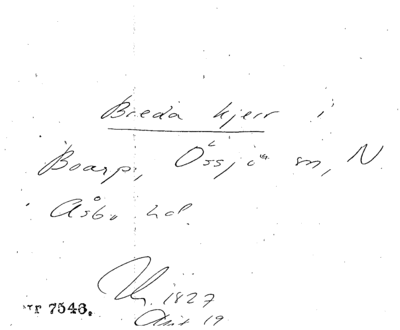 Breda kjerr i
Boarp, Össjö sn, N
Åsbo hd.
1827
nr 7546.